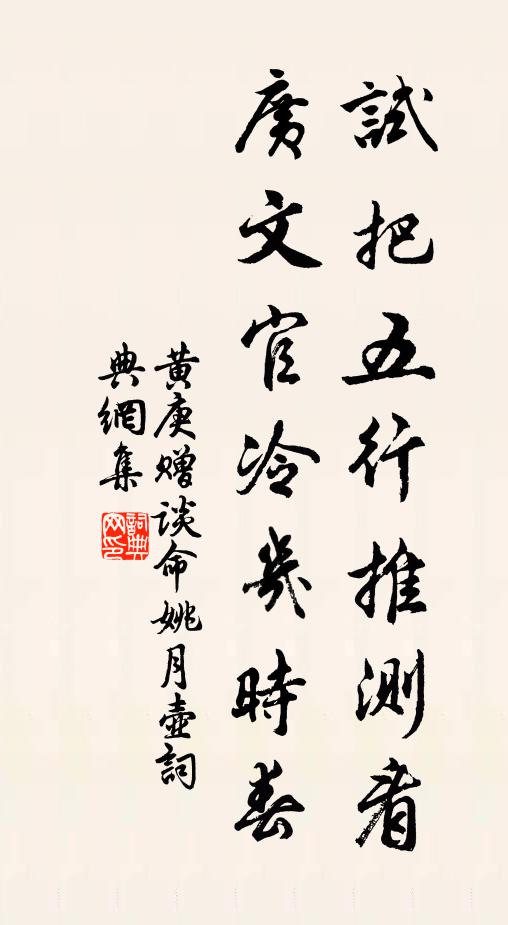 試把五行推測看
廣文官冷幾時春
黃庚贈談命姚月壺詞
典網集
詞典網印